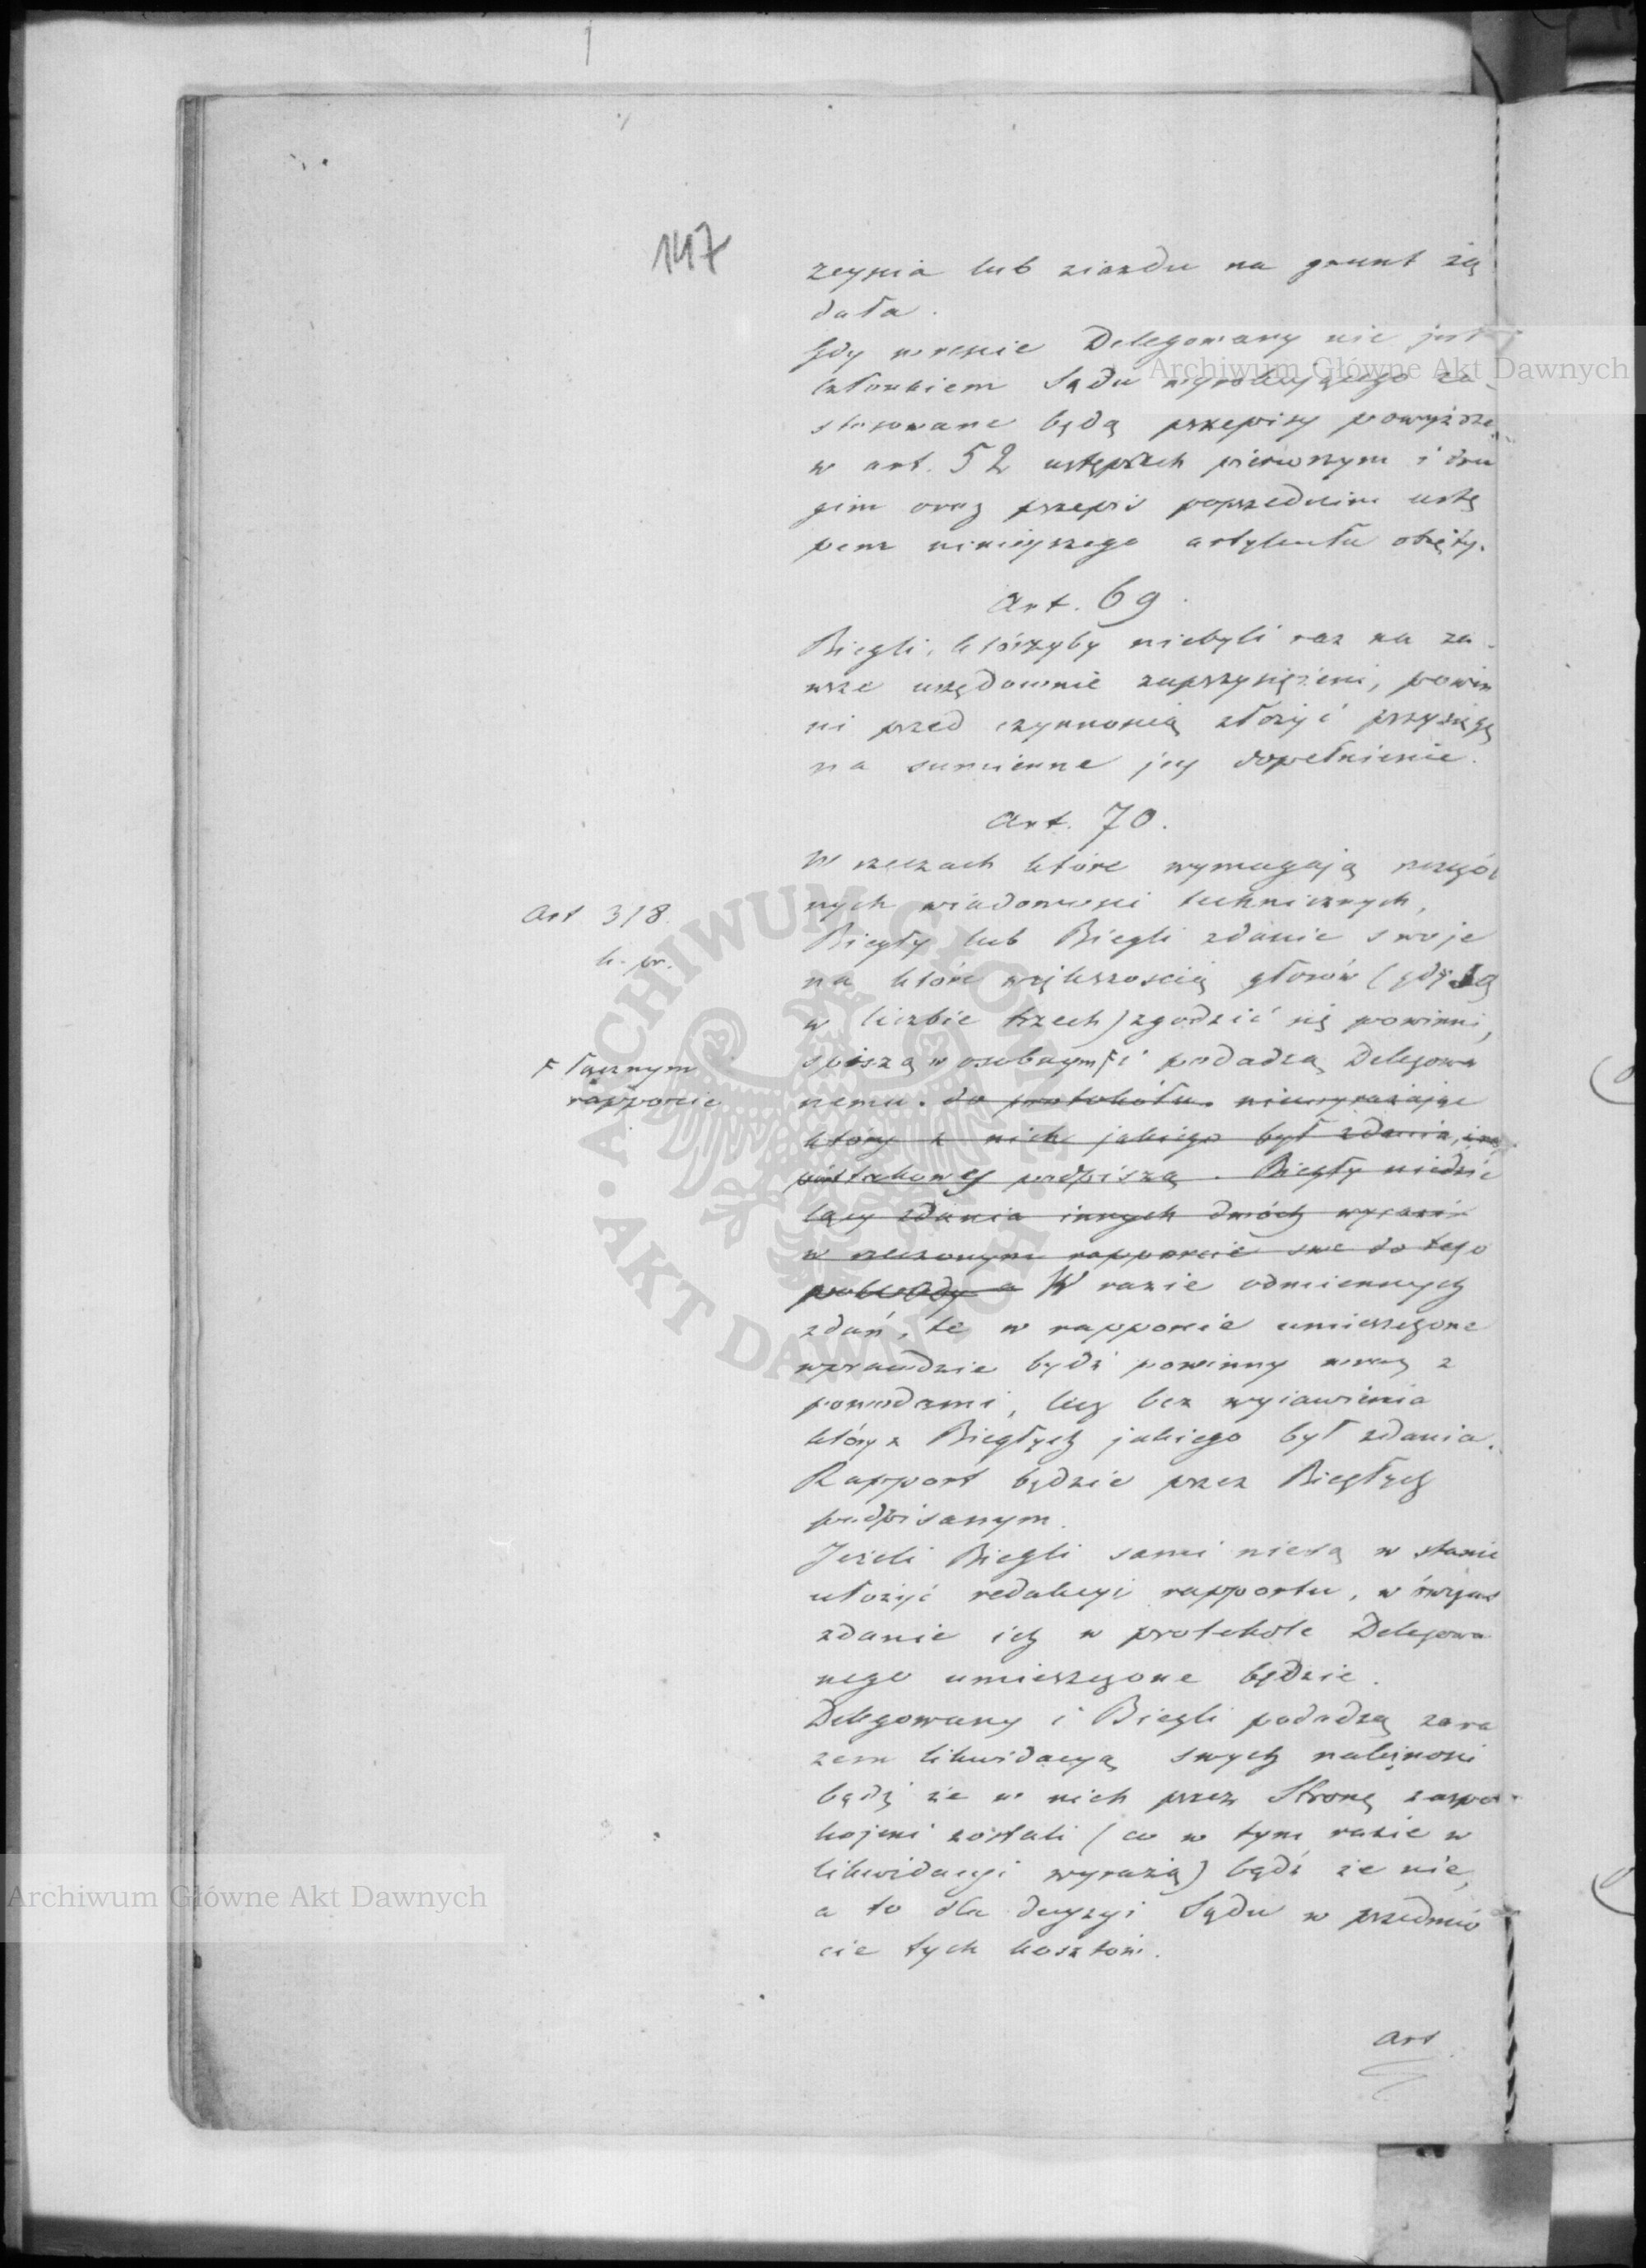 147
zeynia lub ziazdu na grunt żą
dała.
Gdy wresзcie Delegowany nie jest
członkiem Sądu wyrokuiącego za-
stosowane będą przepisy powyższe
w art. 52 ustępach pierwszym i dru
gim oraz przepis poprzednim ustę
pem ninieyszego artykułu obięty.
Art. 69.
Biegli, którzyby niebyli raz na za-
wsze urzędownie zaprzysiężeni, powin
ni przed czynnością złożyć przysięgę
na sumienne jey dopełnienie.
Art. 70.
W rzeczach które wymagają szczegól
nych wiadomości technicznych,
Art 318.
k. pr.
Biegły lub Biegli zdanie swoje
na które większością głosów (gdy są
w liczbie trzech) zgodzić się powinni,
spiszą w osobnym F i podadzą Delegowa
F łącznym
rapporcie
nemu. do protokółu. niewyrażając
który z nich jakiego był zdania,
podpiszą. Biegły niedzie
lący zdania innych dwóch wyrazi
w rzeczonym rapporcie swe do tego
powody a W razie odmiennych
zdań, te w rapporcie umieszczone
wprawdzie bydź powinny wraz z
powodami, lecz bez wyiawienia
który z Biegłych jakiego był zdania.
Rapport będzie przez Biegłych
podpisanym.
Jeżeli Biegli sami niesą w stanie
ułożyć redakcyi rapportu, wówczas
zdanie ich w protokole Delegowa
nego umieszczone będzie.
Delegowany i Biegli podadzą zara
zem likwidacyą swych należności
bądź że w nich przez Stronę zaspo-
kojeni zostali (co w tym razie w
likwidacyi wyrażą) bądź że nie,
a to dla decyzyi Sądu w przedmio
cie tych kosztów.
Art
Archiwum Główne Akt Dawnych
Archiwum Główne Akt Dawnych
ARCHIWUM GŁÓWNE
AKT DAWNYCH